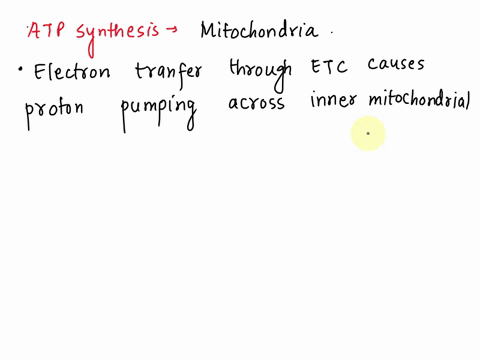 ATP synthesis → Mitochondria.
• Electron tranfer through ETC causes
proton pumping across inner mitochondrial